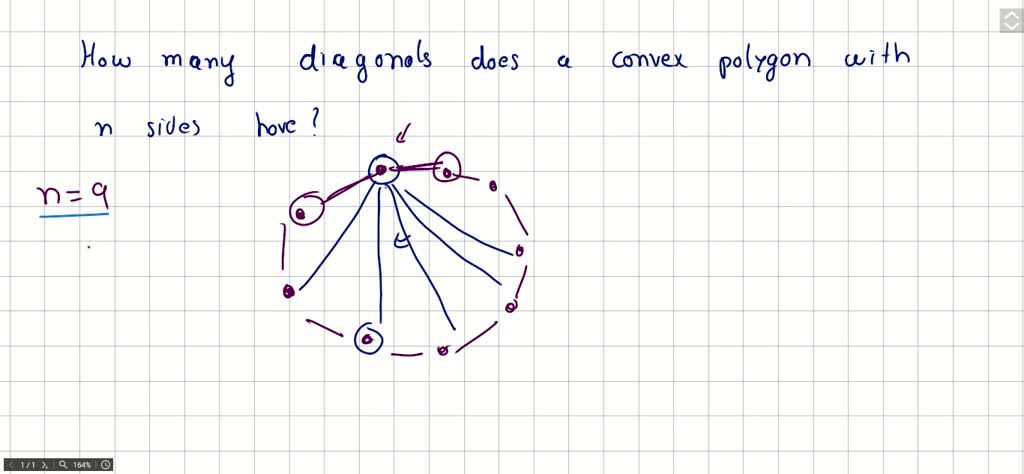 How many diagonals does a convex polygon with
n sides have?
n = 9
1/1 164%